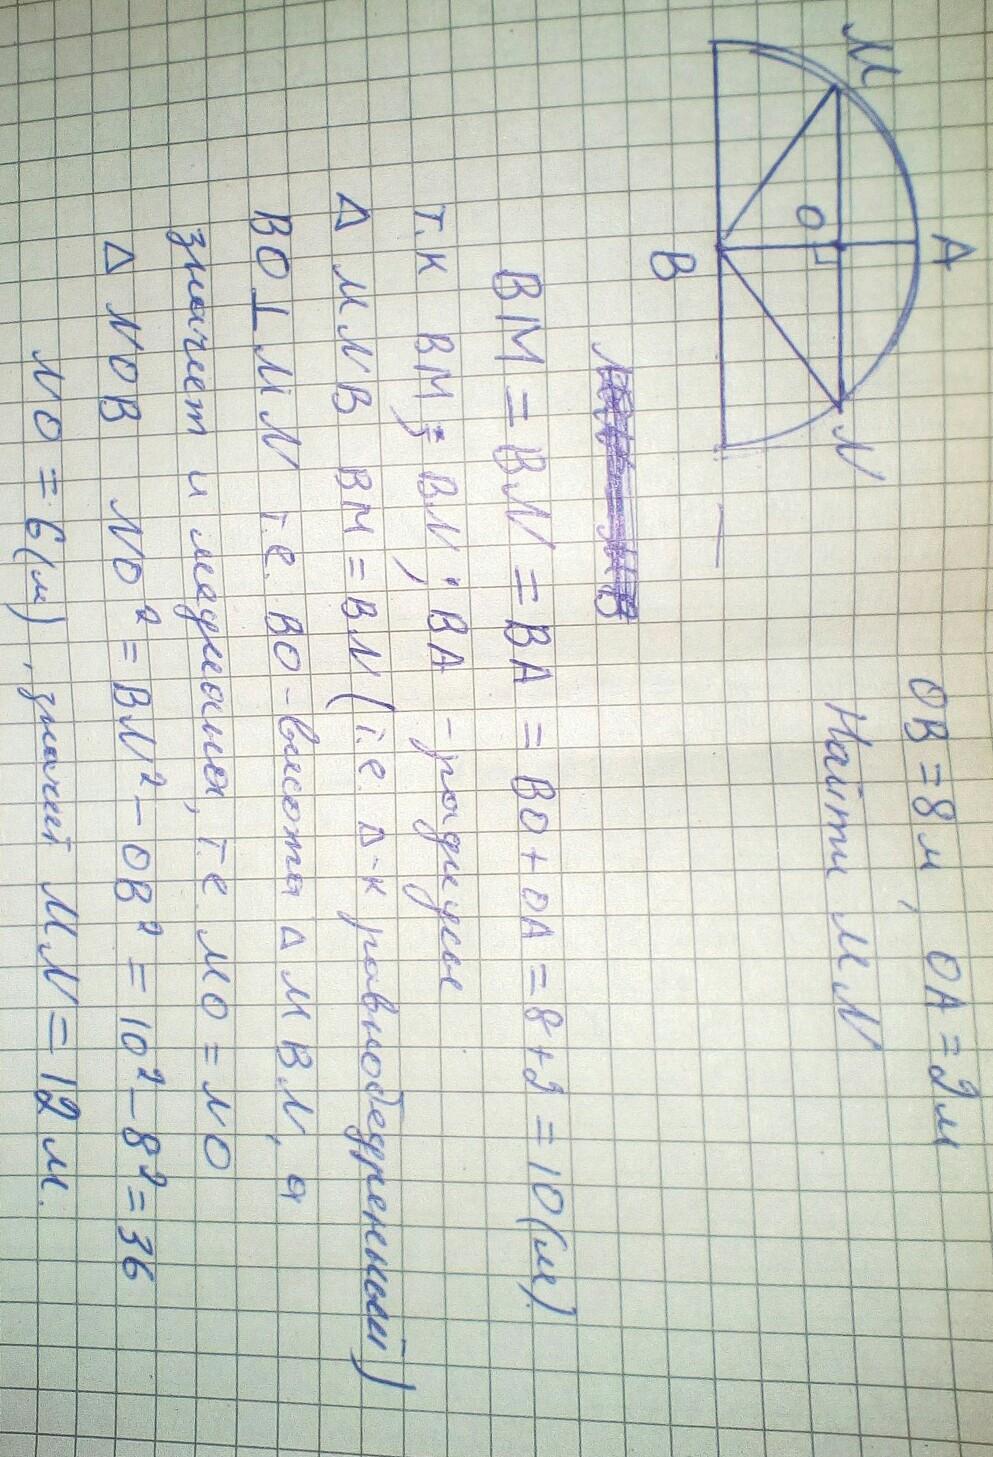 M
A
N
O
B
OB = 8 м, OA = 2 м
Найти MN
BM = BN = BA = BO + OA = 8 + 2 = 10 (м)
т.к BM; BN; BA - радиусы
Δ MNB BM = BN (т.е. Δ-к равнобедренный)
BO ⊥ MN т.е. BO - высота Δ MBN, а
значит и медиана, т.е MO = NO
Δ NOB NO² = BN² - OB² = 10² - 8² = 36
NO = 6 (м), значит MN = 12 м.